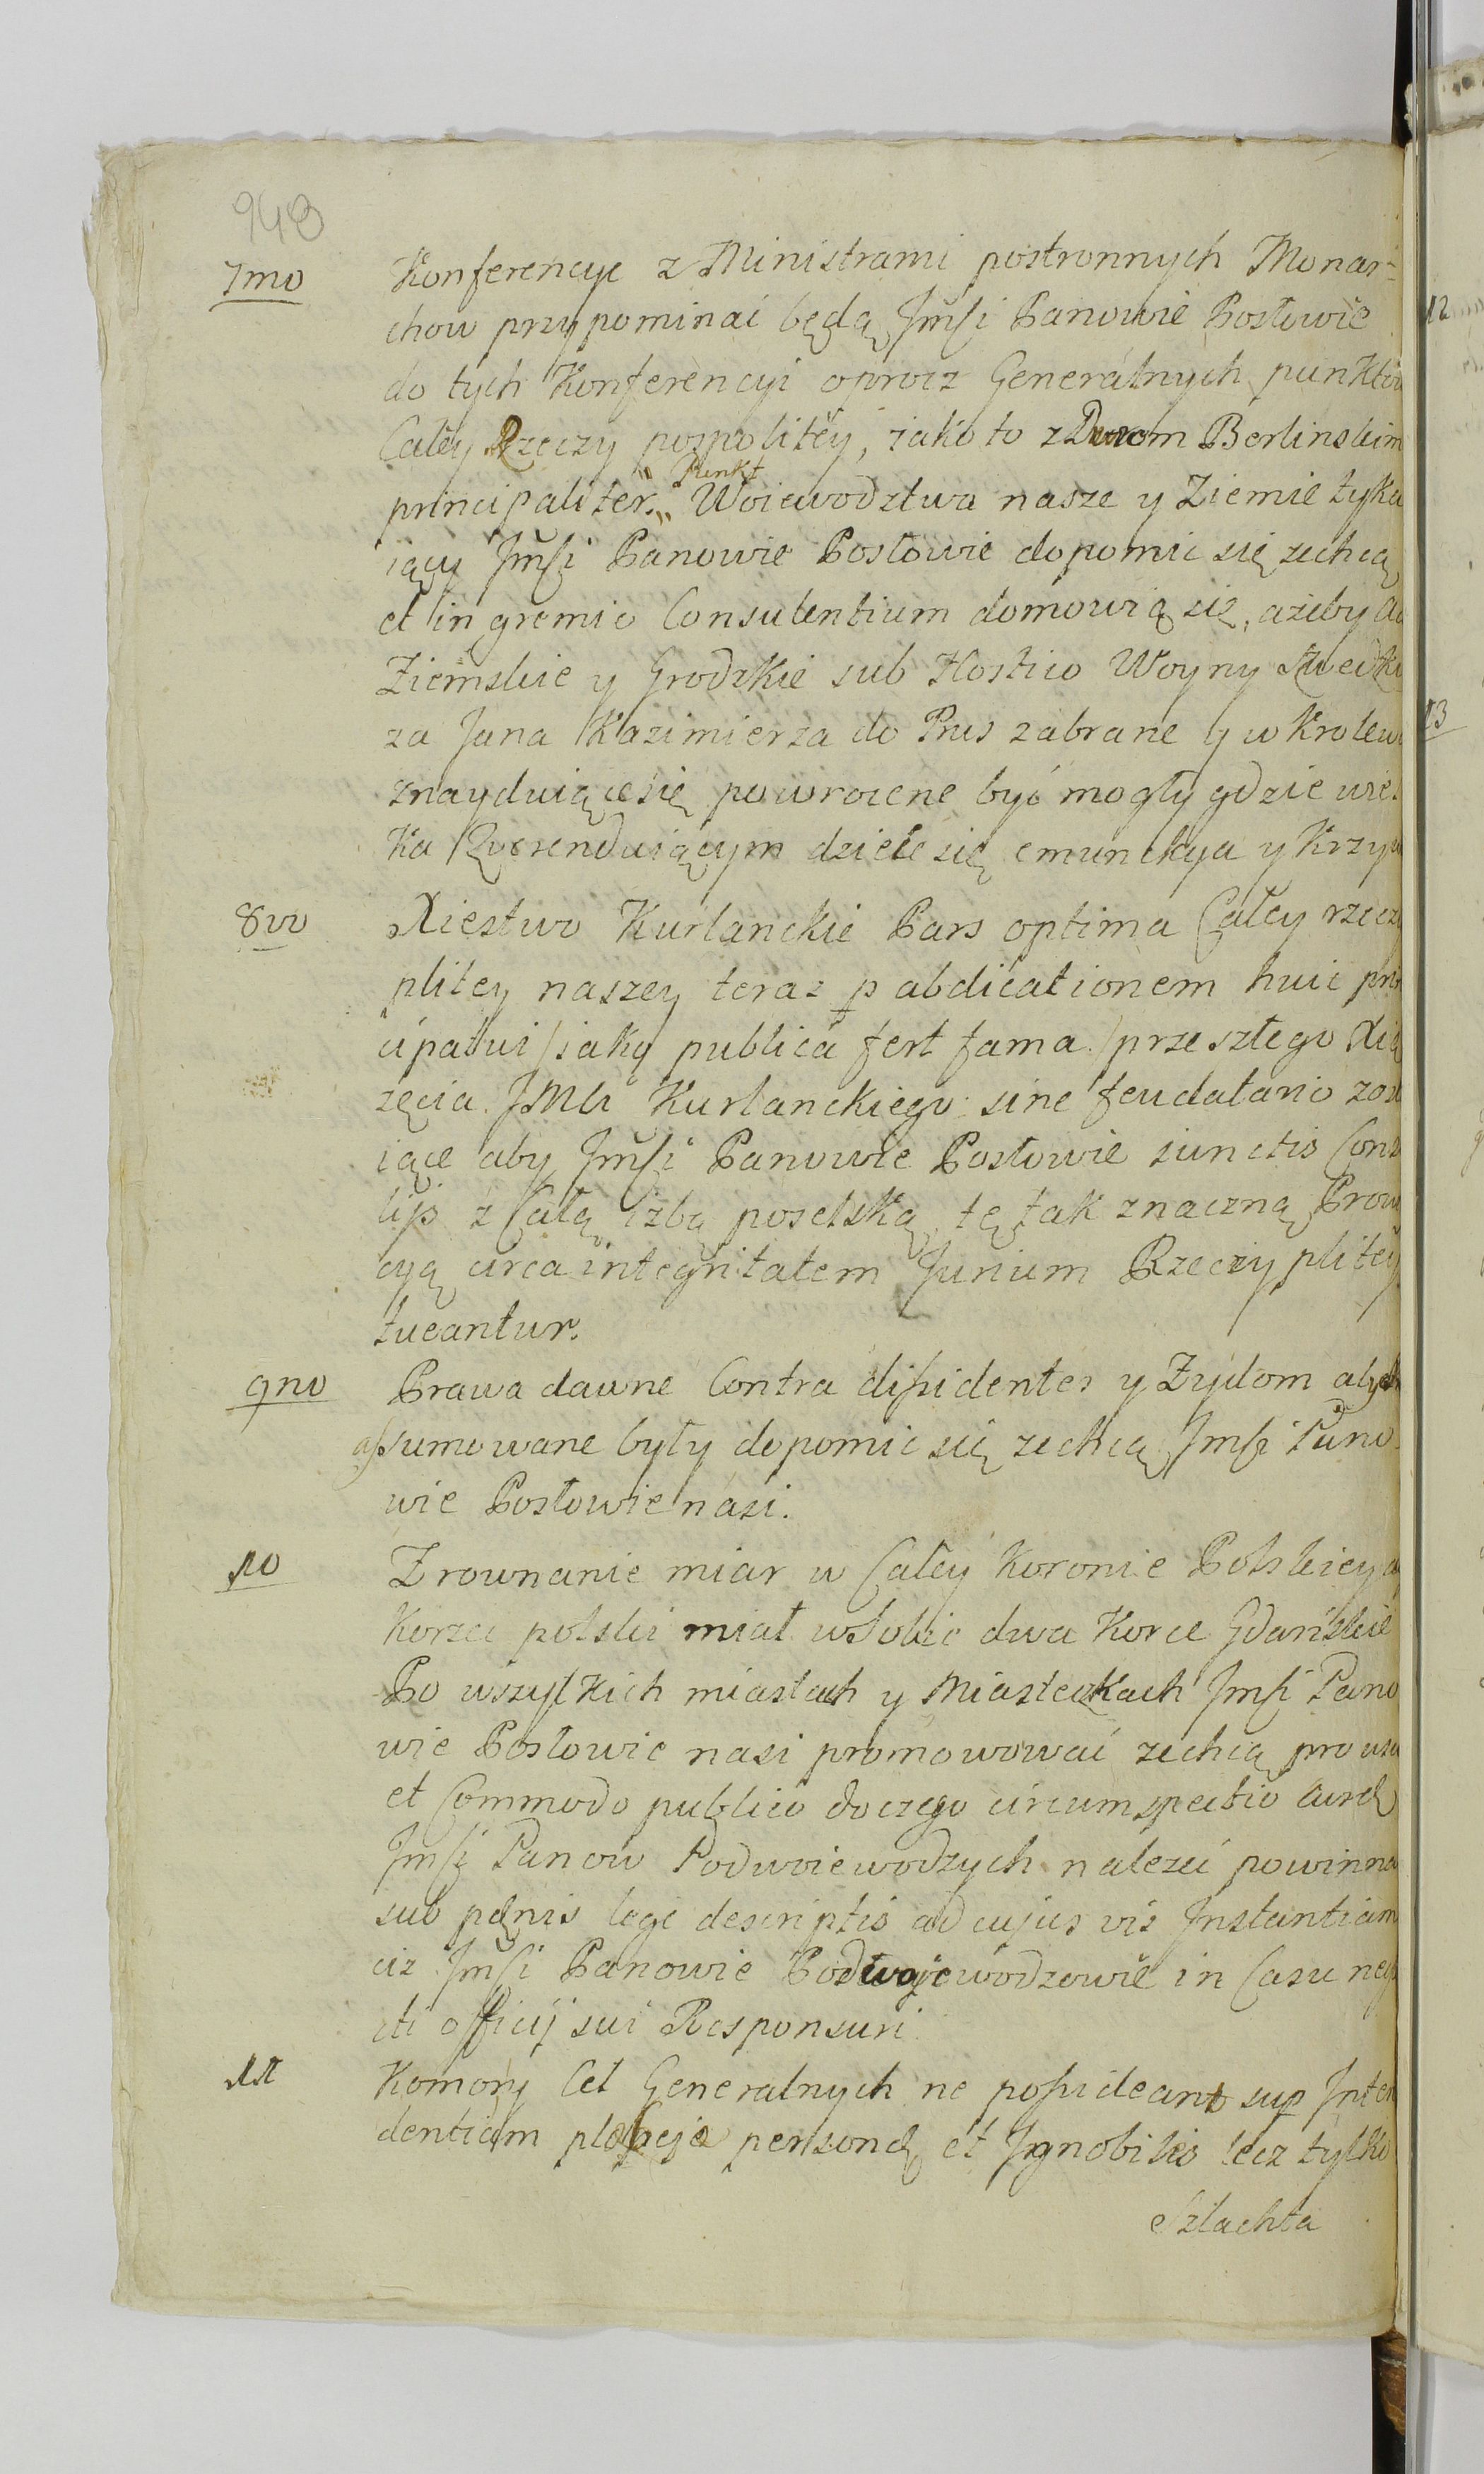 948
7mo Konferencye z Ministrami postronnych Monar-
chow przypominać będą Jmści Panowie Posłowie
do tych Konferencyi oprocz Generalnych punktow
Całey Rzeczy pospolitey, iako to z Dworem Berlinskim
principaliter. Punkt Woiewodztwa nasze y Ziemie tyka
iący Jmści Panowie Posłowie dopomic się zechcą
et in gremio Consulentium domowią się, ażeby
Ziemskie y Grodzkie sub Hostico Woyny
za Jana Kazimierza do Prus zabrane y w Krolew
znayduiące się powrocone być mogły gdzie wiel
ka dzieie się emunctya y Krzyw
8vo Xiestwo Kurlanckie Pars optima Całey rzeczy
plitey naszey teraz p abdicationem huic prin
cipatui /iaką publica fert fama/ przeszłego Xią
żęcia JMci Kurlanckiego sine feudatario zost
iące aby Jmści Panowie Posłowie iunctis Consi
lijs z Całą izbą poselską tę tak znaczną Prow
cyą circa integritatem Jurium Rzeczy plitey
tueantur.
9no Prawa dawne Contra dissidentes y Żydom aby
assumowane były dopomic się zechcą Jmści Pano-
wie Posłowie nasi.
10 Zrownanie miar w Całey Koronie Polskiey a
Korzec polski miał w Sobie dwa Korce Gdańskie
Po wszytkich miastach y Miasteczkach Jmści Pano
wie Posłowie nasi promowować zechcą pro usu
et Commodo publico do czego circumspectio
Jmści Panow Podwoiewodzych należeć powinna
sub pœnis lege descriptis ad cujus vis Jnstantiam
ciz Jmści Panowie Podwojewodzowie in Casu neg
cti officij sui Responsuri
11 Komory Cel Generalnych ne possideant sup Inten
dentiam plebejæ personæ et Jgnobiles lecz tylko
Szlachta
12
13